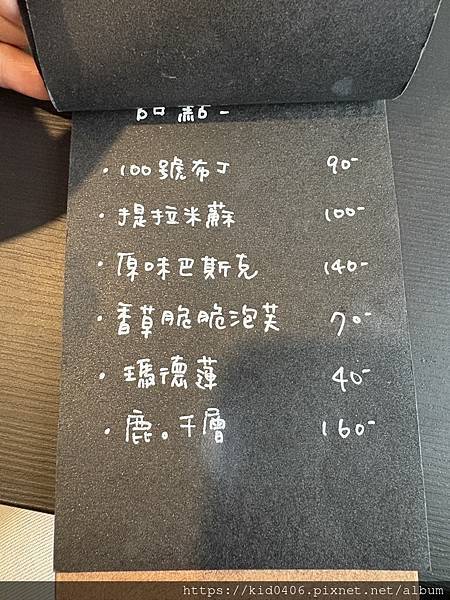 ・100號布丁 90-
・提拉米蘇 100-
・原味巴斯克 140-
・香草脆脆泡芙 70-
・瑪德蓮 40-
・鹿。千層 160-
https://kid0406.pixnet.net/album